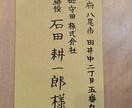 府八尾市田井中二丁目五番九
守田株式会社
締役
石田耕一郎様